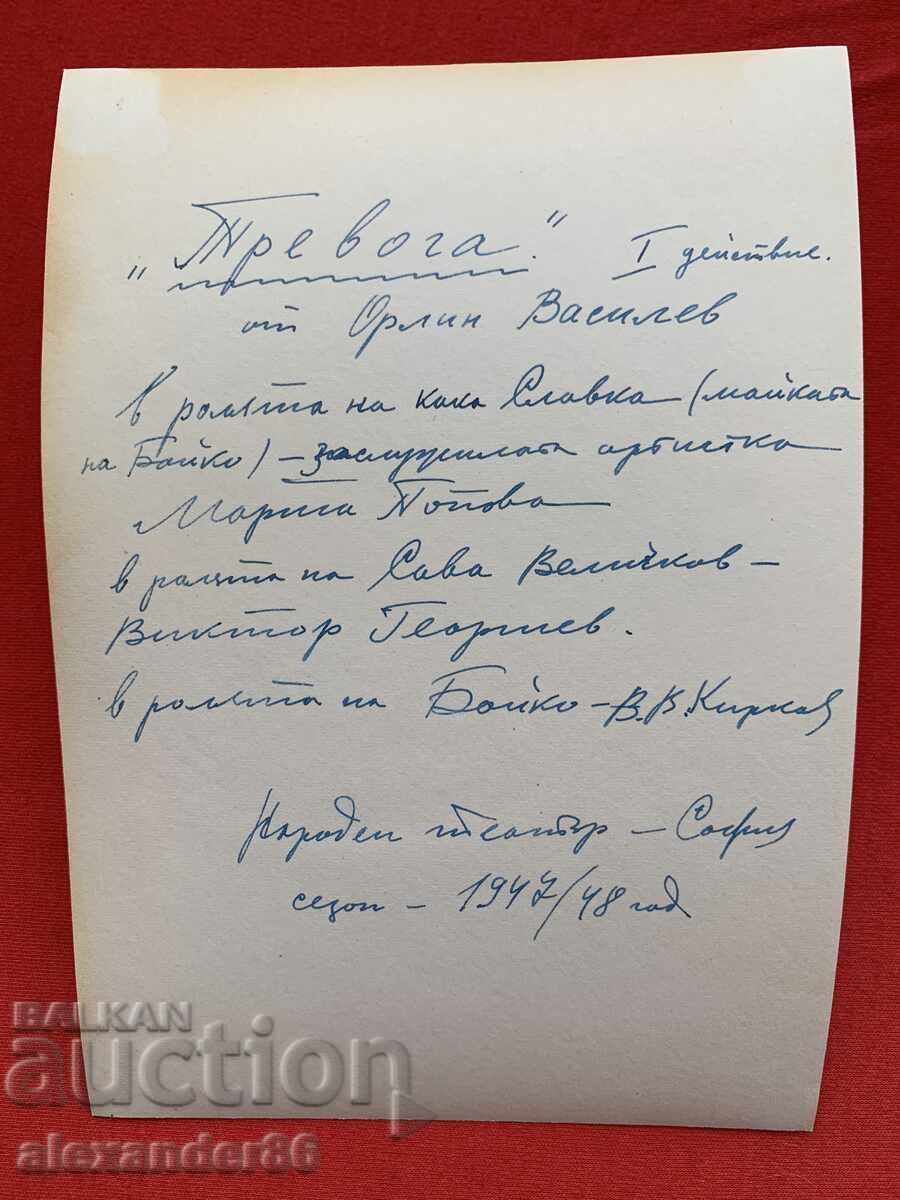 „Тревога." I действие.
от Орлин Василев
в ролята на кака Славка (майката
на Бойко) – заслужилата артистка
Марта Попова
в ролята на Сава Величков –
Виктор Георгиев.
в ролята на Бойко – В.В. Кирков
Народен театър – София
сезон – 1947/48 год
BALKAN
auction
alexander86